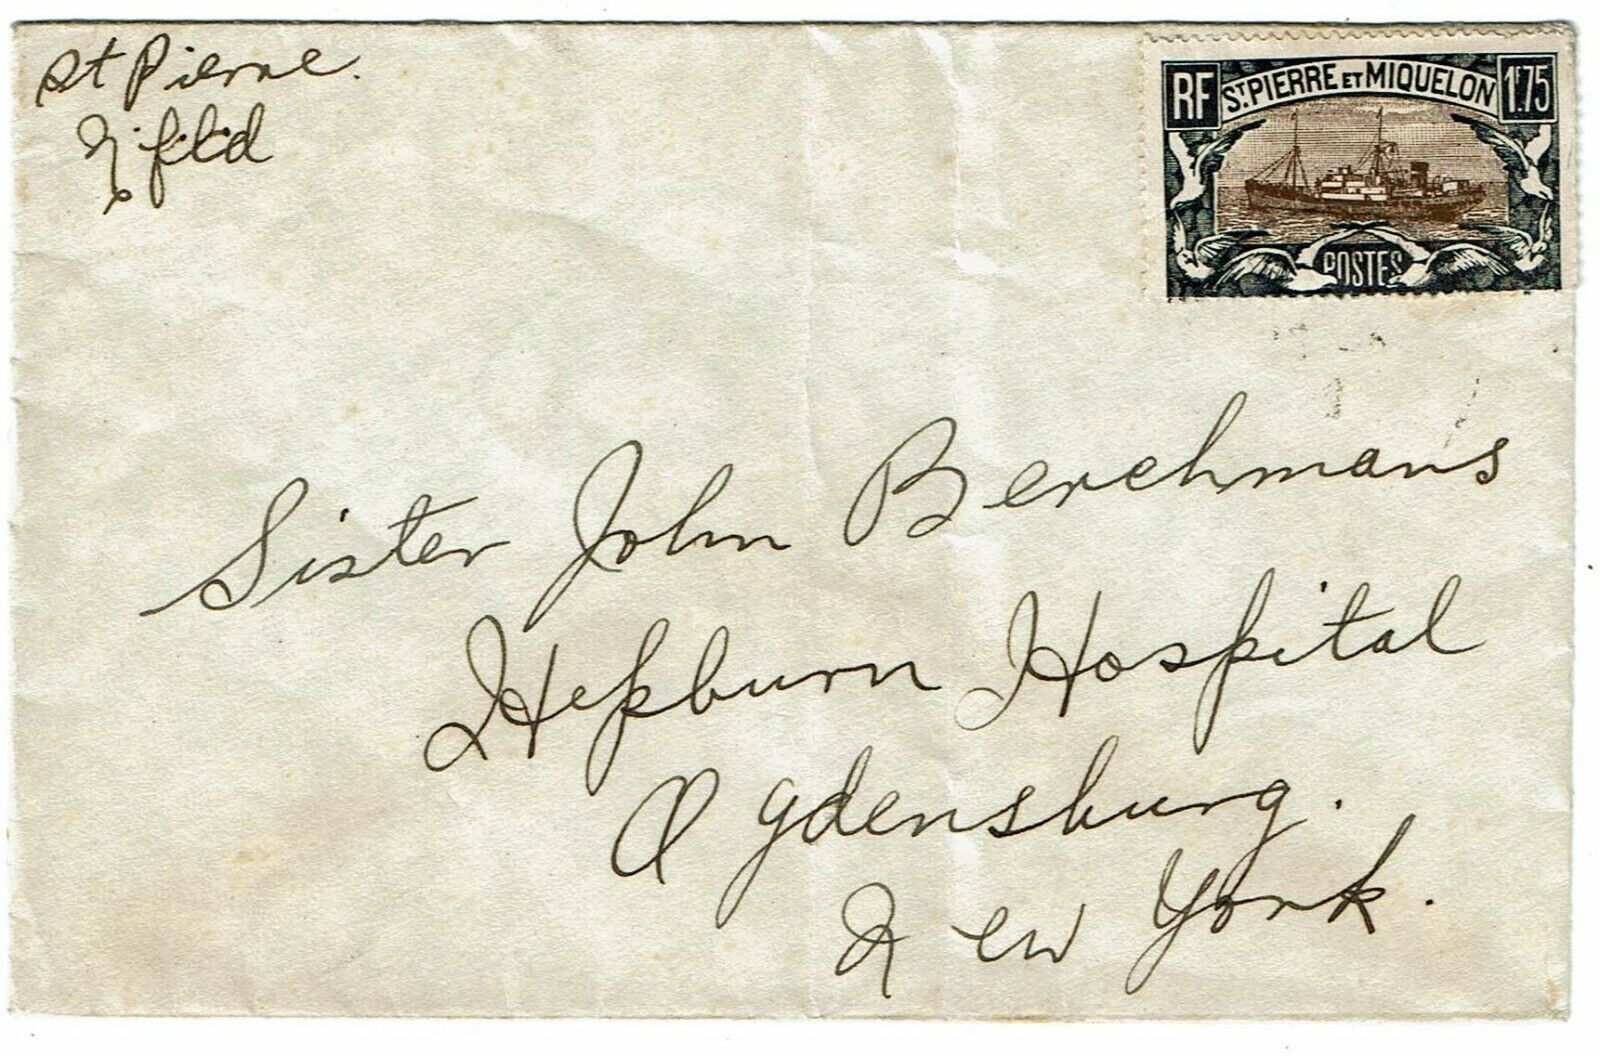 St Pierre.
Nfld
RF ST. PIERRE ET MIQUELON 1F.75
POSTES
Sister John Berchmans
Hepburn Hospital
Ogdensburg.
New York.